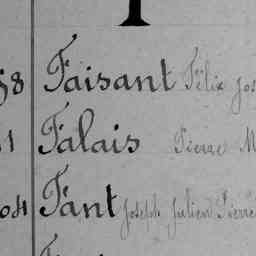 58 Faisant Félix Jos
1 Falais Pierre M
04 Fant Joseph Julien Pierre